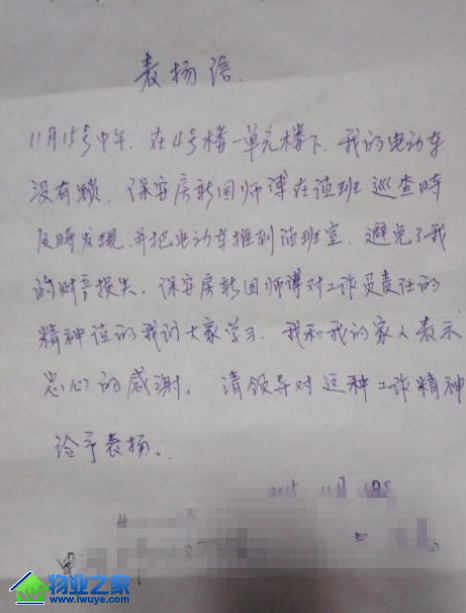 表扬信.
11月15号中午. 在4号楼一单元楼下. 我的电动车
没有锁. 保安房新国师傅在值班巡查時
及時发現.并把电动车推到值班室. 避免了我
的财产损失. 保安房新国师傅对工作负责任的
精神值的我们大家学习. 我和我的家人表示
忠心的感谢. 请领导对这种工作精神
给予表扬..
2015 11月
物业之家
www.iwuye.com